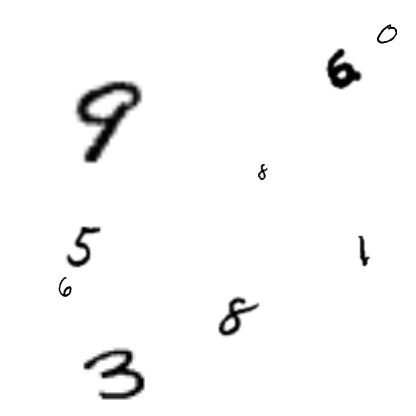 0
6
9
8
5
1
6
8
3